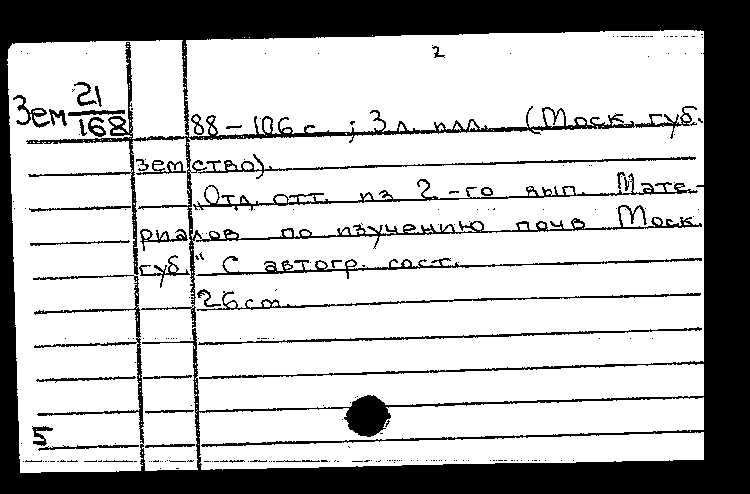 2
Зем 21/168
88 – 106 с. ; 3 л. илл. (Моск. губ.
земство).
„Отд. отт. из 2-го вып. Мате-
риалов по изучению почв Моск.
губ." С автогр. сост.
26 см.
5